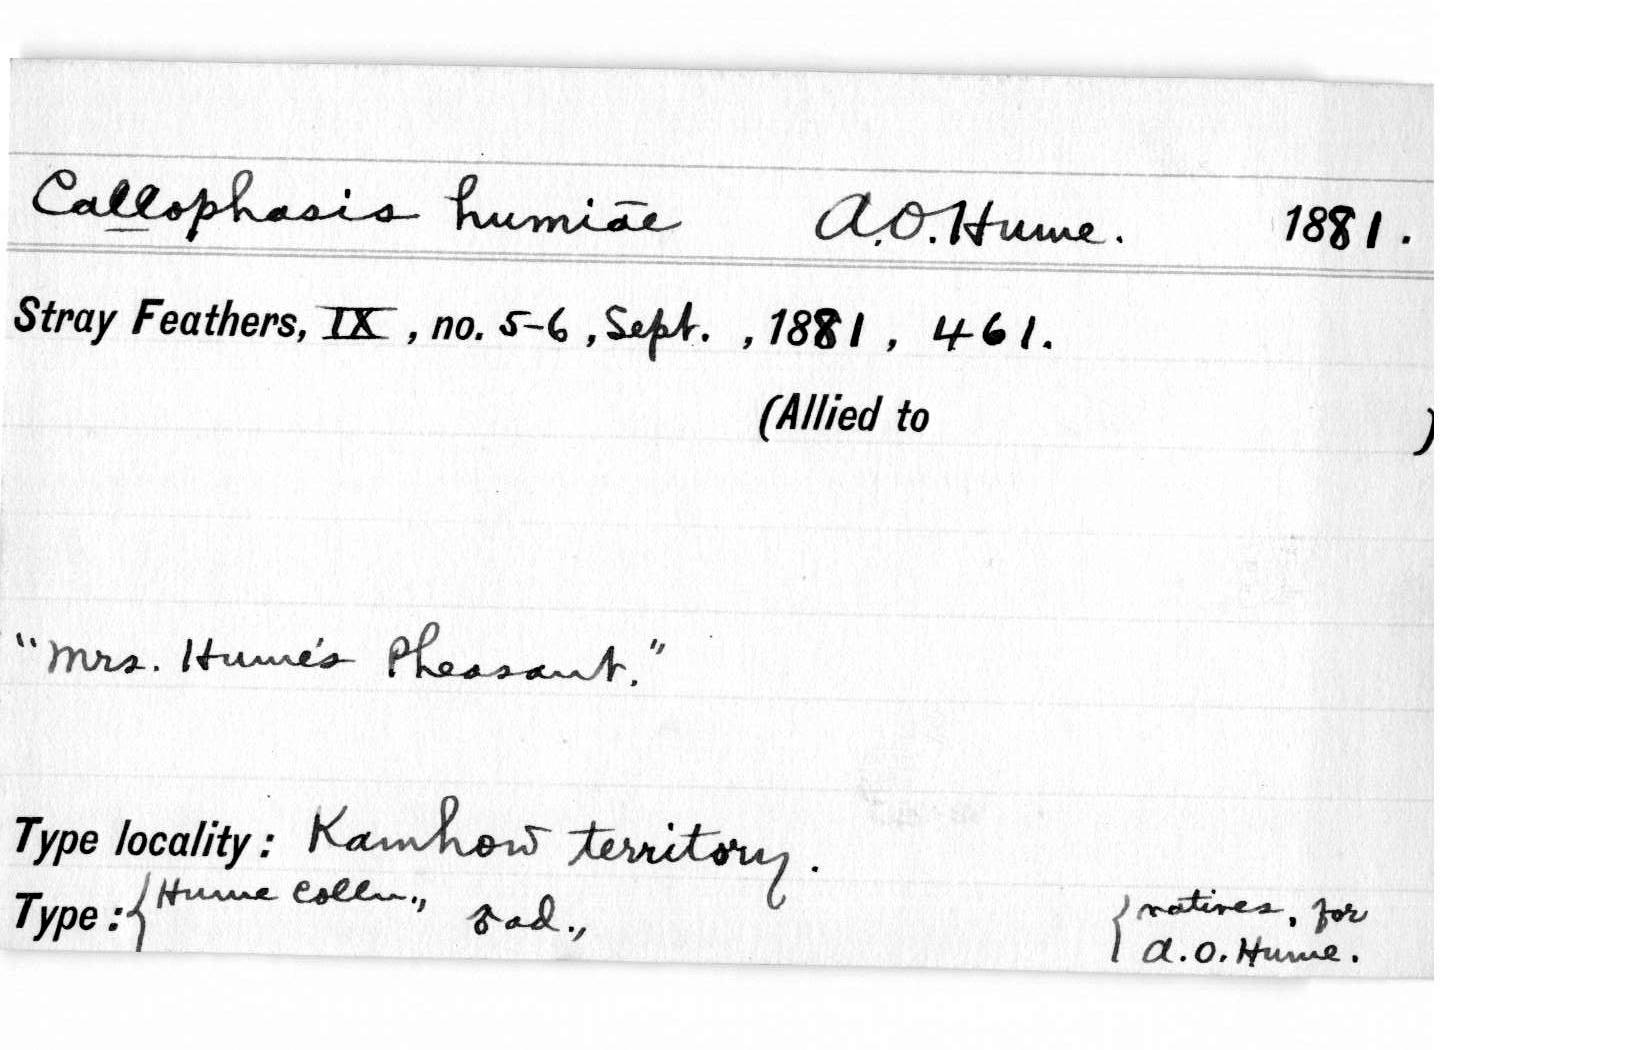 Callophasis humiāe A.O. Hume. 1881.
Stray Feathers, IX, no. 5-6, Sept., 1881, 461.
(Allied to )
"Mrs. Hume's Pheasant."
Type locality: Kamhow territory.
Type: { Hume Colln., ad., { natives, for
A.O. Hume.